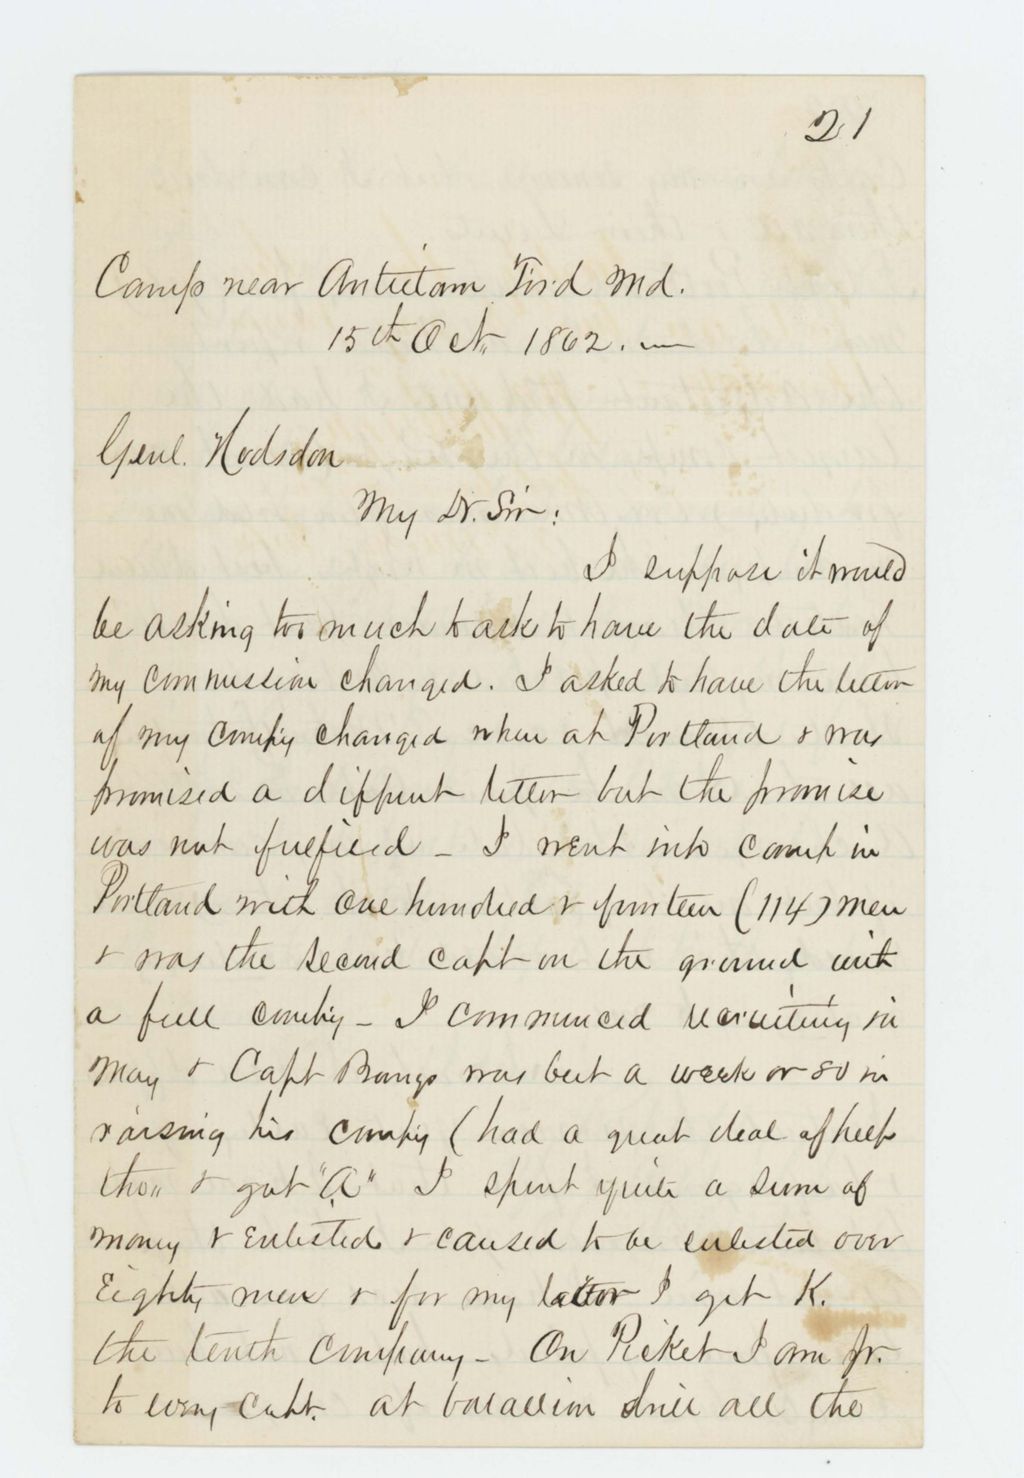 21
Camp near Antietam Ford Md.
15th Oct. 1862. —
Genl. Hodsdon
My Dr. Sir:
I suppose it would
be asking too much to ask to have the date of
my commission changed. I asked to have the letter
of my compy changed when at Portland & was
promised a diffrent letter but the promise
was not fulfiled - I went into camp in
Portland with one hundred & fourteen (114) men
& was the second capt on the ground with
a full compy - I commenced recruiting in
May & Capt Bangs was but a week or so in
raising his compy (had a great deal of help
tho" & got "A" I spent quite a sum of
money & Enlisted & caused to be enlisted over
Eighty men & for my letter I get K.
the tenth company - On Picket I am Jr.
to every capt. at batallion drill all the